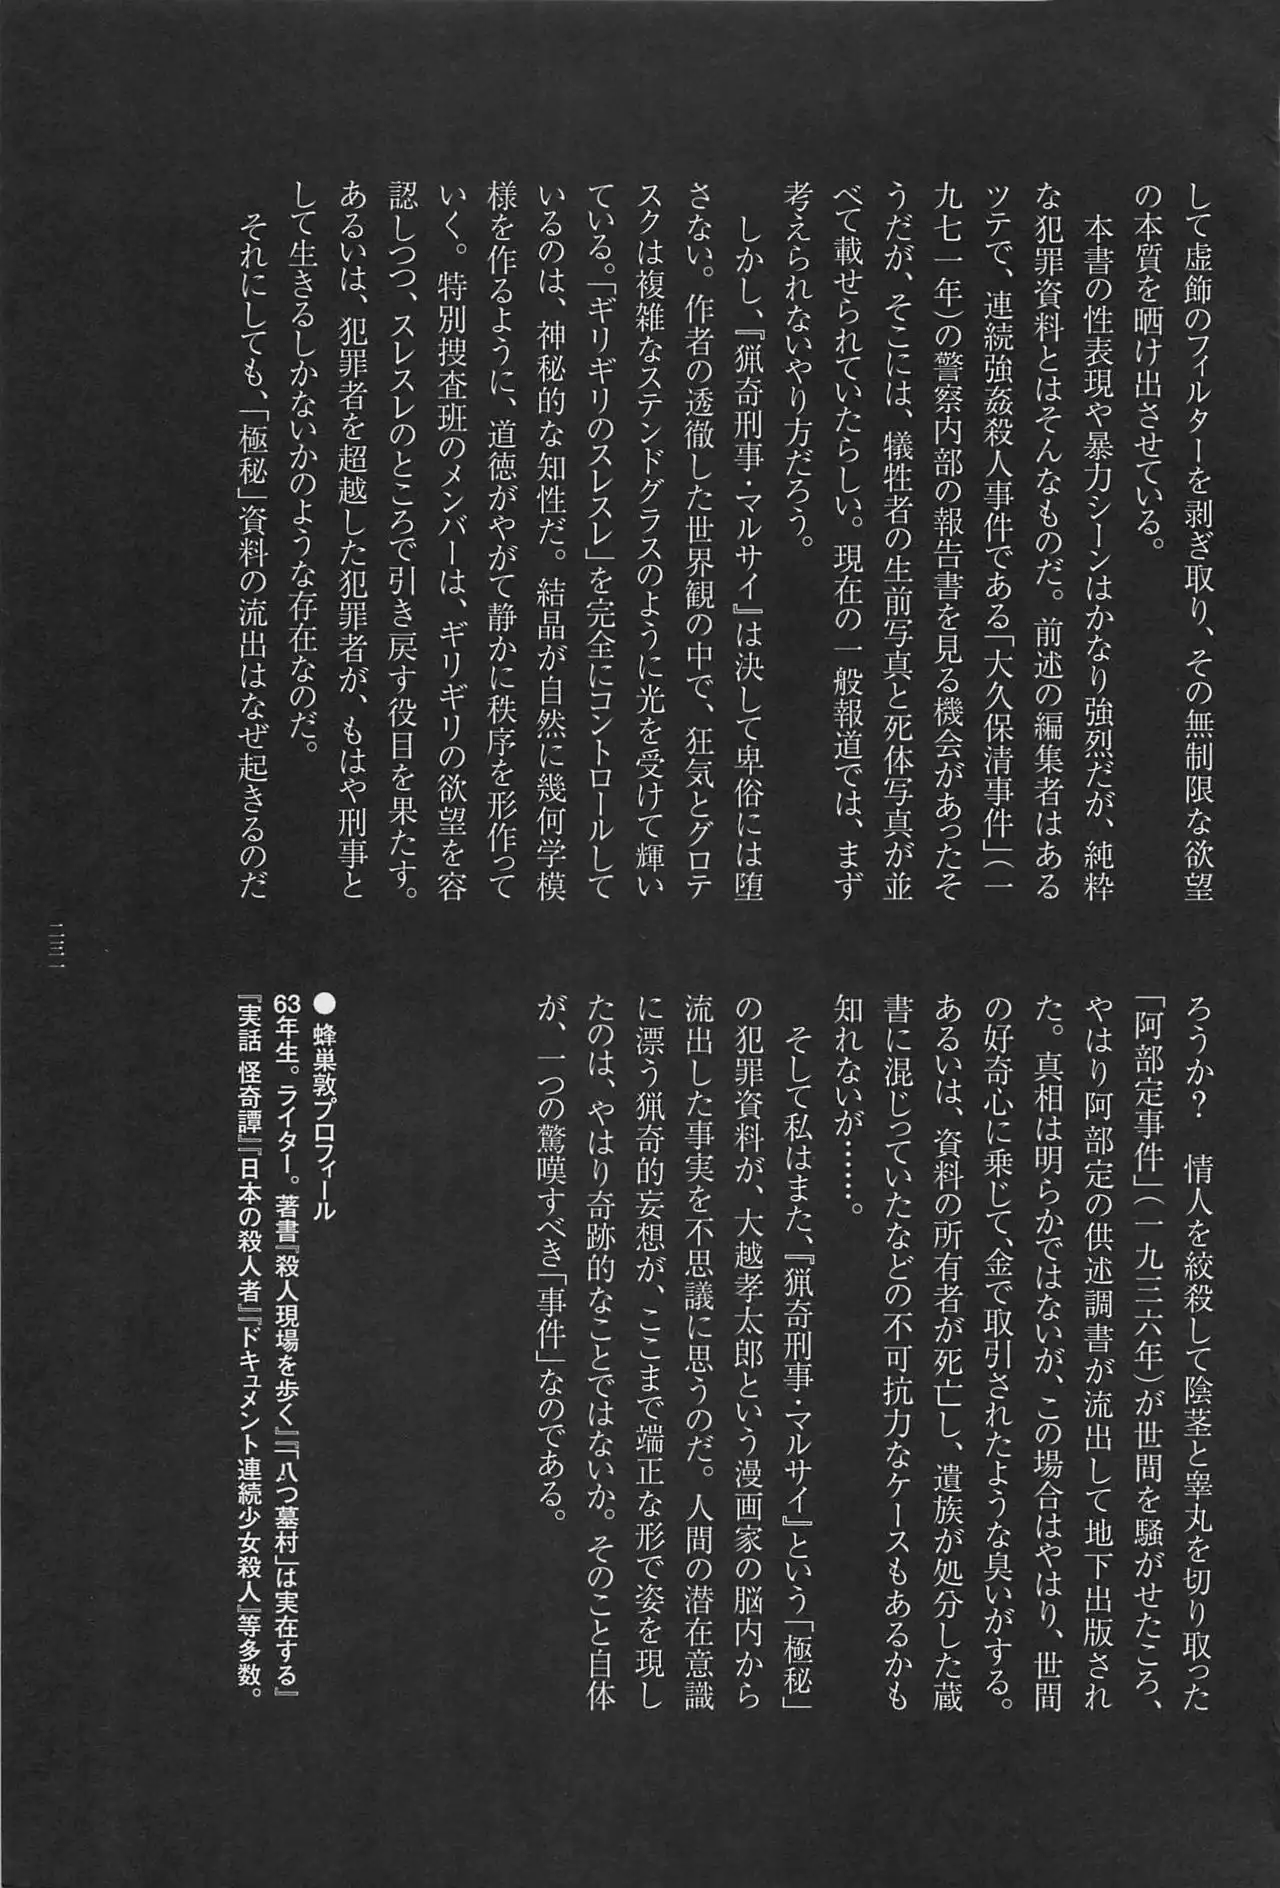 して虚飾のフィルターを剥ぎ取り、その無制限な欲望
の本質を晒け出させている。
　本書の性表現や暴力シーンはかなり強烈だが、純粋
な犯罪資料とはそんなものだ。前述の編集者はある
ツテで、連続強姦殺人事件である「大久保清事件」（一
九七一年）の警察内部の報告書を見る機会があったそ
うだが、そこには、犠牲者の生前写真と死体写真が並
べて載せられていたらしい。現在の一般報道では、まず
考えられないやり方だろう。
　しかし、『猟奇刑事・マルサイ』は決して卑俗には堕
さない。作者の透徹した世界観の中で、狂気とグロテ
スクは複雑なステンドグラスのように光を受けて輝い
ている。「ギリギリのスレスレ」を完全にコントロールして
いるのは、神秘的な知性だ。結晶が自然に幾何学模
様を作るように、道徳がやがて静かに秩序を形作って
いく。特別捜査班のメンバーは、ギリギリの欲望を容
認しつつ、スレスレのところで引き戻す役目を果たす。
あるいは、犯罪者を超越した犯罪者が、もはや刑事と
して生きるしかないかのような存在なのだ。
　それにしても、「極秘」資料の流出はなぜ起きるのだ
ろうか？　情人を絞殺して陰茎と睾丸を切り取った
「阿部定事件」（一九三六年）が世間を騒がせたころ、
やはり阿部定の供述調書が流出して地下出版され
た。真相は明らかではないが、この場合はやはり、世間
の好奇心に乗じて、金で取引されたような臭いがする。
あるいは、資料の所有者が死亡し、遺族が処分した蔵
書に混じっていたなどの不可抗力なケースもあるかも
知れないが……。
　そして私はまた、『猟奇刑事・マルサイ』という「極秘」
の犯罪資料が、大越孝太郎という漫画家の脳内から
流出した事実を不思議に思うのだ。人間の潜在意識
に漂う猟奇的妄想が、ここまで端正な形で姿を現し
たのは、やはり奇跡的なことではないか。そのこと自体
が、一つの驚嘆すべき「事件」なのである。
●蜂巣敦プロフィール
63年生。ライター。著書『殺人現場を歩く』『「八つ墓村」は実在する』
『実話 怪奇譚』『日本の殺人者』『ドキュメント連続少女殺人』等多数。
二三一